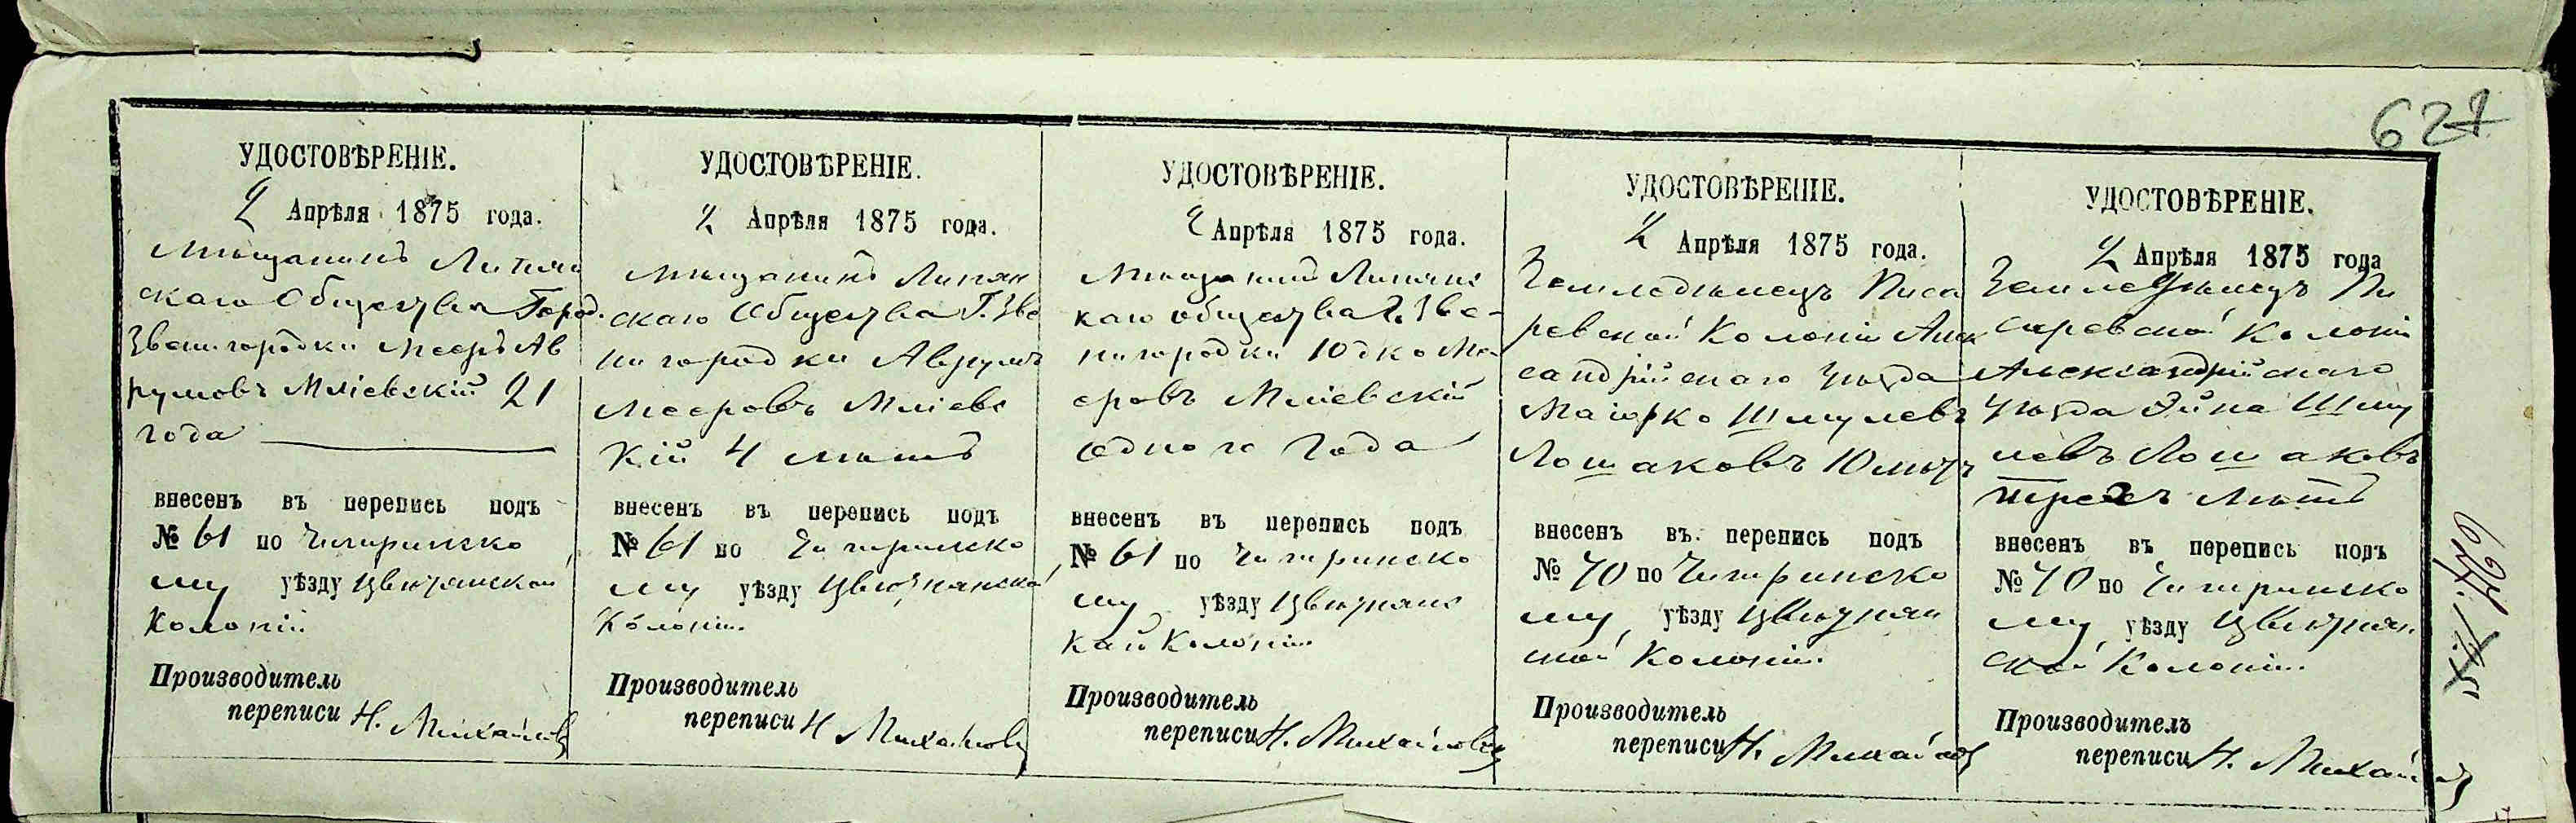 627
УДОСТОВѢРЕНІЕ.
2 Апрѣля 1875 года.
Мѣщанинъ
скаго Общества Город.
Звенигородки Мееръ Ав
румовъ Мліевскій 21
года
внесенъ въ перепись подъ
№ 61 по Чигиринско
му уѣзду Цвѣтянской
Колоніи
Производитель
переписи Н. Михайловъ
УДОСТОВѢРЕНІЕ.
2 Апрѣля 1875 года.
Мѣщанинъ Липян
скаго Общества Г. Зве
нигородки Аврумъ
Мееровъ Мліевс
кій 4 лѣтъ
внесенъ въ перепись подъ
№ 61 по Чигиринско
му уѣзду Цвѣтнянской
Колоніи
Производитель
переписи Н Михайловъ
УДОСТОВѢРЕНІЕ.
2 Апрѣля 1875 года.
Мѣщанинъ Липянс
каго общества г. Зве-
нигородки Юдко Ме
еровъ Мліевскій
одного года
внесенъ въ перепись подъ
№ 61 по Чигиринско
му уѣзду Цвѣтнянс
кой Колоніи
Производитель
переписи Н. Михайловъ
УДОСТОВѢРЕНІЕ.
2 Апрѣля 1875 года.
Земледѣлецъ Писа
ревской Колоніи Алек
сандрійскаго Уѣзда
Маіорко Шмулевъ
Лошаковъ 10 лѣтъ
внесенъ въ перепись подъ
№ 70 по Чигиринско
му уѣзду Цвѣтнян
ской Колоніи
Производитель
переписи Н. Михайловъ
УДОСТОВѢРЕНІЕ.
2 Апрѣля 1875 года
Земледѣлецъ Пи
саревской Колоніи
Александрійскаго
Уѣзда Эйна Шму
левъ Лошаковъ
трехъ лѣтъ
внесенъ въ перепись подъ
№ 70 по Чигиринско
му уѣзду Цвѣтнян
ской Колоніи
Производитель
переписи Н. Михайловъ